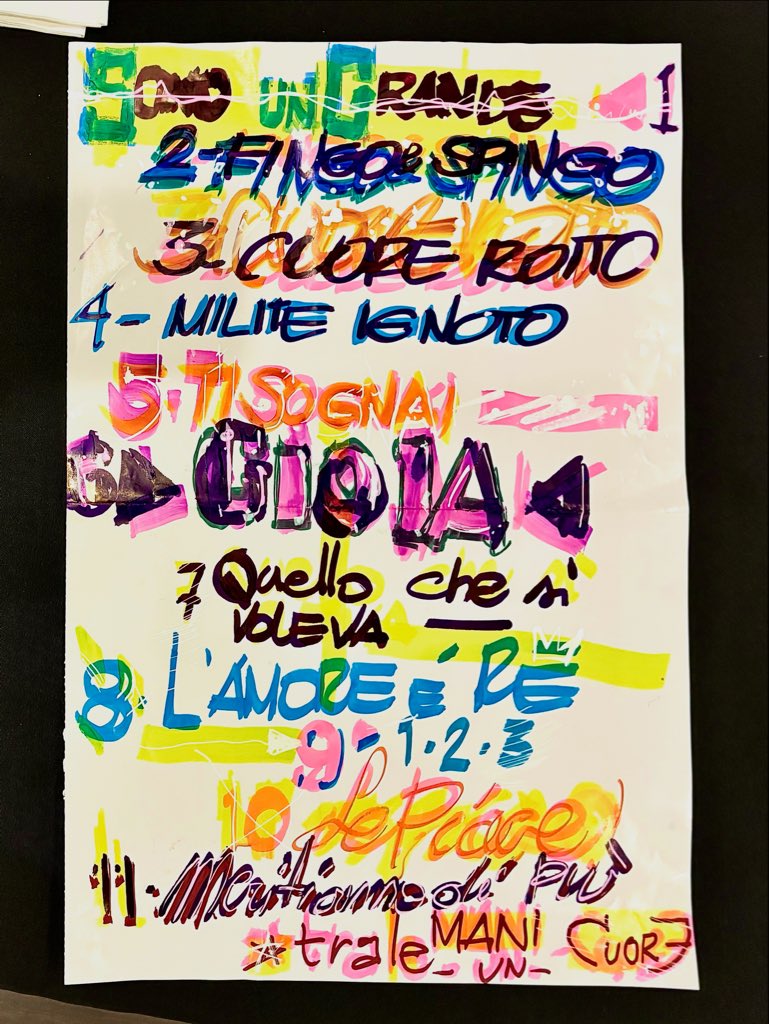 SONO UN GRANDE 1
2-FINGO & SPINGO
3-CUORE ROTTO
4-MILITE IGNOTO
5-TI SOGNAI
6 GIOIA
7 Quello che si
VOLEVA
8 L'AMORE É RE
9-1-2-3
10 Le Piace
11-Meritiamo di Più
tra le MANI CUORE
-UN-